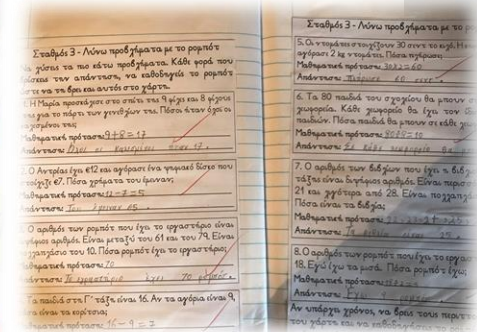 Σταθμός 3 - Λύνω προβλήματα με το ρομπότ
Να λύσεις τα πιο κάτω προβλήματα. Κάθε φορά που
βρίσκεις την απάντηση, να καθοδηγείς το ρομπότ
ώστε να τη βρει και αυτός στο χάρτη.
1. Η Μαρία προσκάλεσε στο σπίτι της 9 φίλες και 8 φίλους
για το πάρτι των γενεθλίων της. Πόσοι ήταν όλοι οι
καλεσμένοι της;
Μαθηματική πρόταση: 9+8=17
Απάντηση: Όλοι οι καλεσμένοι ήταν 17.
2. Ο Αντρέας έχει €12 και αγόρασε ένα ψηφιακό δίσκο που
στοίχιζε €7. Πόσα χρήματα του έμειναν;
Μαθηματική πρόταση: 12-7=5
Απάντηση: Του έμειναν €5.
Ο αριθμός των ρομπότ που έχει το εργαστήριο είναι
διψήφιος αριθμός. Είναι μεταξύ του 61 και του 79. Είναι
πολλαπλάσιο του 10. Πόσα ρομπότ έχει το εργαστήριο;
Μαθηματική πρόταση: 70
Απάντηση: Το εργαστήριο έχει 70 ρομπότ.
Τα παιδιά στη Γ΄ τάξη είναι 16. Αν τα αγόρια είναι 9,
πόσα είναι τα κορίτσια;
Μαθηματική πρόταση: 16-9=7
Σταθμός 3 - Λύνω προβλήματα με το ρο
5. Οι ντομάτες στοιχίζουν 30 σεντ το κιλό. Η
αγόρασε 2 kg ντομάτες. Πόσα πλήρωσε;
Μαθηματική πρόταση: 30x2=60
Απάντηση: Πλήρωσε 60 σεντ.
6. Τα 80 παιδιά του σχολείου θα μπουν σ
λεωφορεία. Κάθε λεωφορείο θα έχει τον
παιδιών. Πόσα παιδιά θα μπουν σε κάθε
Μαθηματική πρόταση:
Απάντηση: Σε κάθε λεωφορείο θα
7. Ο αριθμός των βιβλίων που έχει η βιβλ
τάξης είναι διψήφιος αριθμός. Είναι περισ
21 και λιγότερα από 28. Είναι πολλαπλ
Πόσα είναι τα βιβλία;
Μαθηματική πρόταση:
Απάντηση: Τα βιβλία είναι 25.
8. Ο αριθμός των ρομπότ που έχει το εργασ
18. Εγώ έχω τα μισά. Πόσα ρομπότ έχω;
Μαθηματική πρόταση:
Απάντηση: Έχω
Αν υπάρχει χρόνος, να βρεις τους περιττο
του χάρτη και να καθοδηγήσεις το